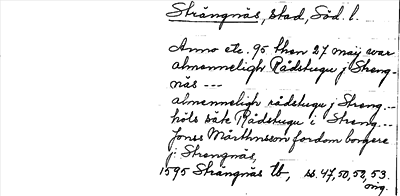 Strängnäs, stad, Söd. l.
Anno etc. 95 then 27 maij war
almenneligh Rådstugu j Streng-
näs ---
almenneligh rådstugu j Streng...
höls säte Rådstugu i Streng...
Jöns Mårthnsson fordom borgere
j: Strengnäs,
1595 Strängnäs tb, ss. 47, 50, 52, 53.
orig.